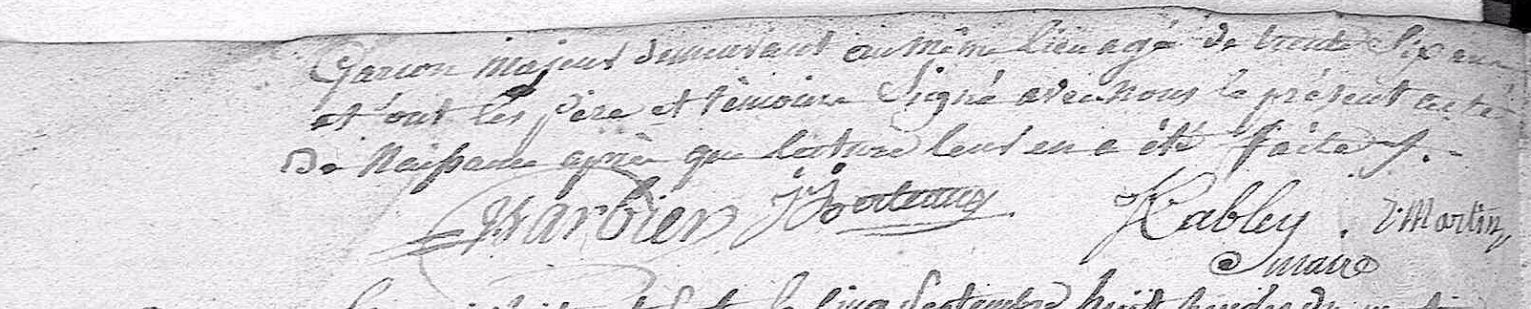 Garcon majeur demeurant au même lieu agé de trente Six ans
et ont les père et témoins Signé avec nous le présent acte
De Naissance après que lecture leur en a été faite
Barbier Kabley J. Martin
maire
le cinq Septembre huit heures du